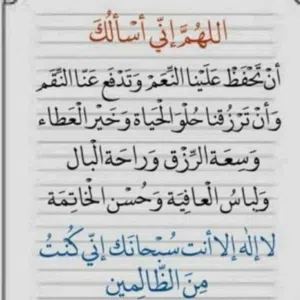 اللهمَّ إنّي أسألُكَ
أنْ تَحْفَظْ عَلَيْنا النِّعَمْ وَتَدْفَع عَنّا النِّقَم
وَأنْ تَرْزُقنا حُلْوَ الْحَيَاة وَخَيْر الْعَطاء
وَسِعَة الرِّزْق وَرَاحَة الْبال
وَلِبَاسُ الْعَافِيَة وَحُسْن الْخَاتِمَة
لا إله إلا أنت سُبْحَانَك إنّي كُنْتُ
مِنَ الظَّالِمين